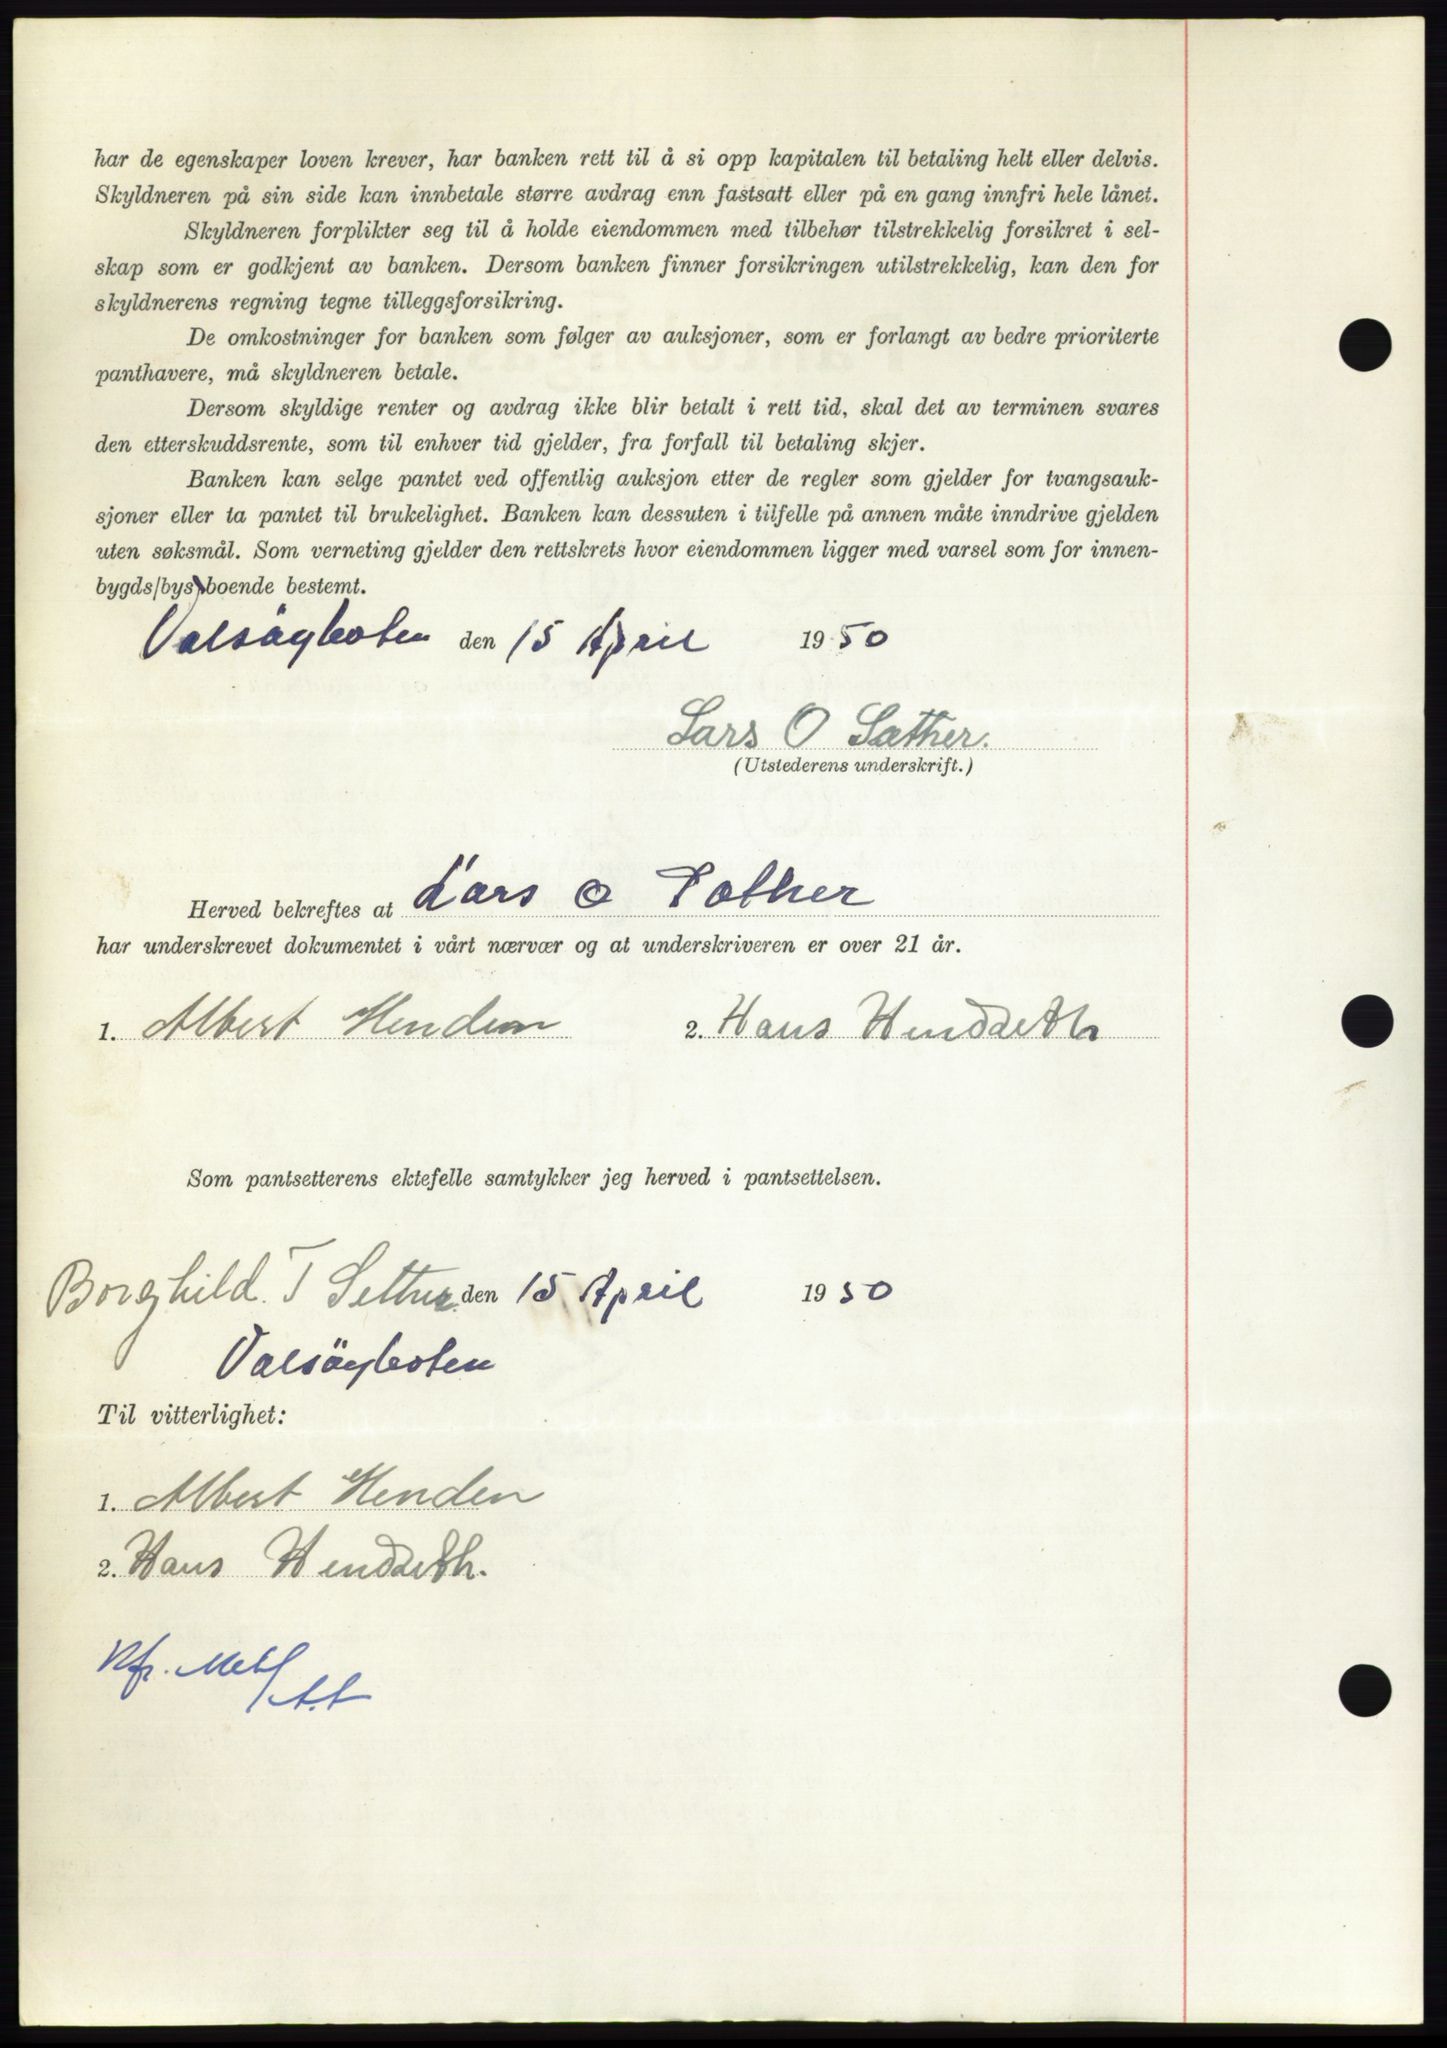 har de egenskaper loven krever, har banken rett til å si opp kapitalen til betaling helt eller delvis.
Skyldneren på sin side kan innbetale større avdrag enn fastsatt eller på en gang innfri hele lånet.
Skyldneren forplikter seg til å holde eiendommen med tilbehør tilstrekkelig forsikret i sel-
skap som er godkjent av banken. Dersom banken finner forsikringen utilstrekkelig, kan den for
skyldnerens regning tegne tilleggsforsikring.
De omkostninger for banken som følger av auksjoner, som er forlangt av bedre prioriterte
panthavere, må skyldneren betale.
Dersom skyldige renter og avdrag ikke blir betalt i rett tid, skal det av terminen svares
den etterskuddsrente, som til enhver tid gjelder, fra forfall til betaling skjer.
Banken kan selge pantet ved offentlig auksjon etter de regler som gjelder for tvangsauk-
sjoner eller ta pantet til brukelighet. Banken kan dessuten i tilfelle på annen måte inndrive gjelden
uten søksmål. Som verneting gjelder den rettskrets hvor eiendommen ligger med varsel som for innen-
bygds/bys boende bestemt.
Valsöyboten den 15 April 1950
Lars O Sæther.
(Utstederens underskrift.)
Herved bekreftes at Lars O Sæther
har underskrevet dokumentet i vårt nærvær og at underskriveren er over 21 år.
1. Albert Henden 2. Hans Hendseth
Som pantsetterens ektefelle samtykker jeg herved i pantsettelsen.
Borghild T Sether den 15 April 1950
Valsöyboten
Til vitterlighet:
1. Albert Henden
2. Hans Hendseth.